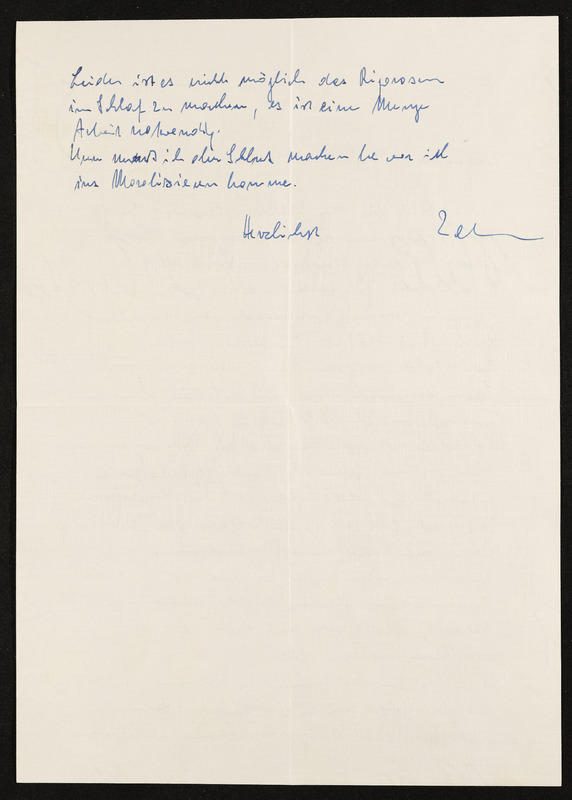 Leider ist es nicht möglich das Rigorosum
im Schlaf zu machen, es ist eine Menge
Arbeit notwendig.
Nun muss ich aber Schluss machen bevor ich
ins Moralisieren komme.
Herzlichst